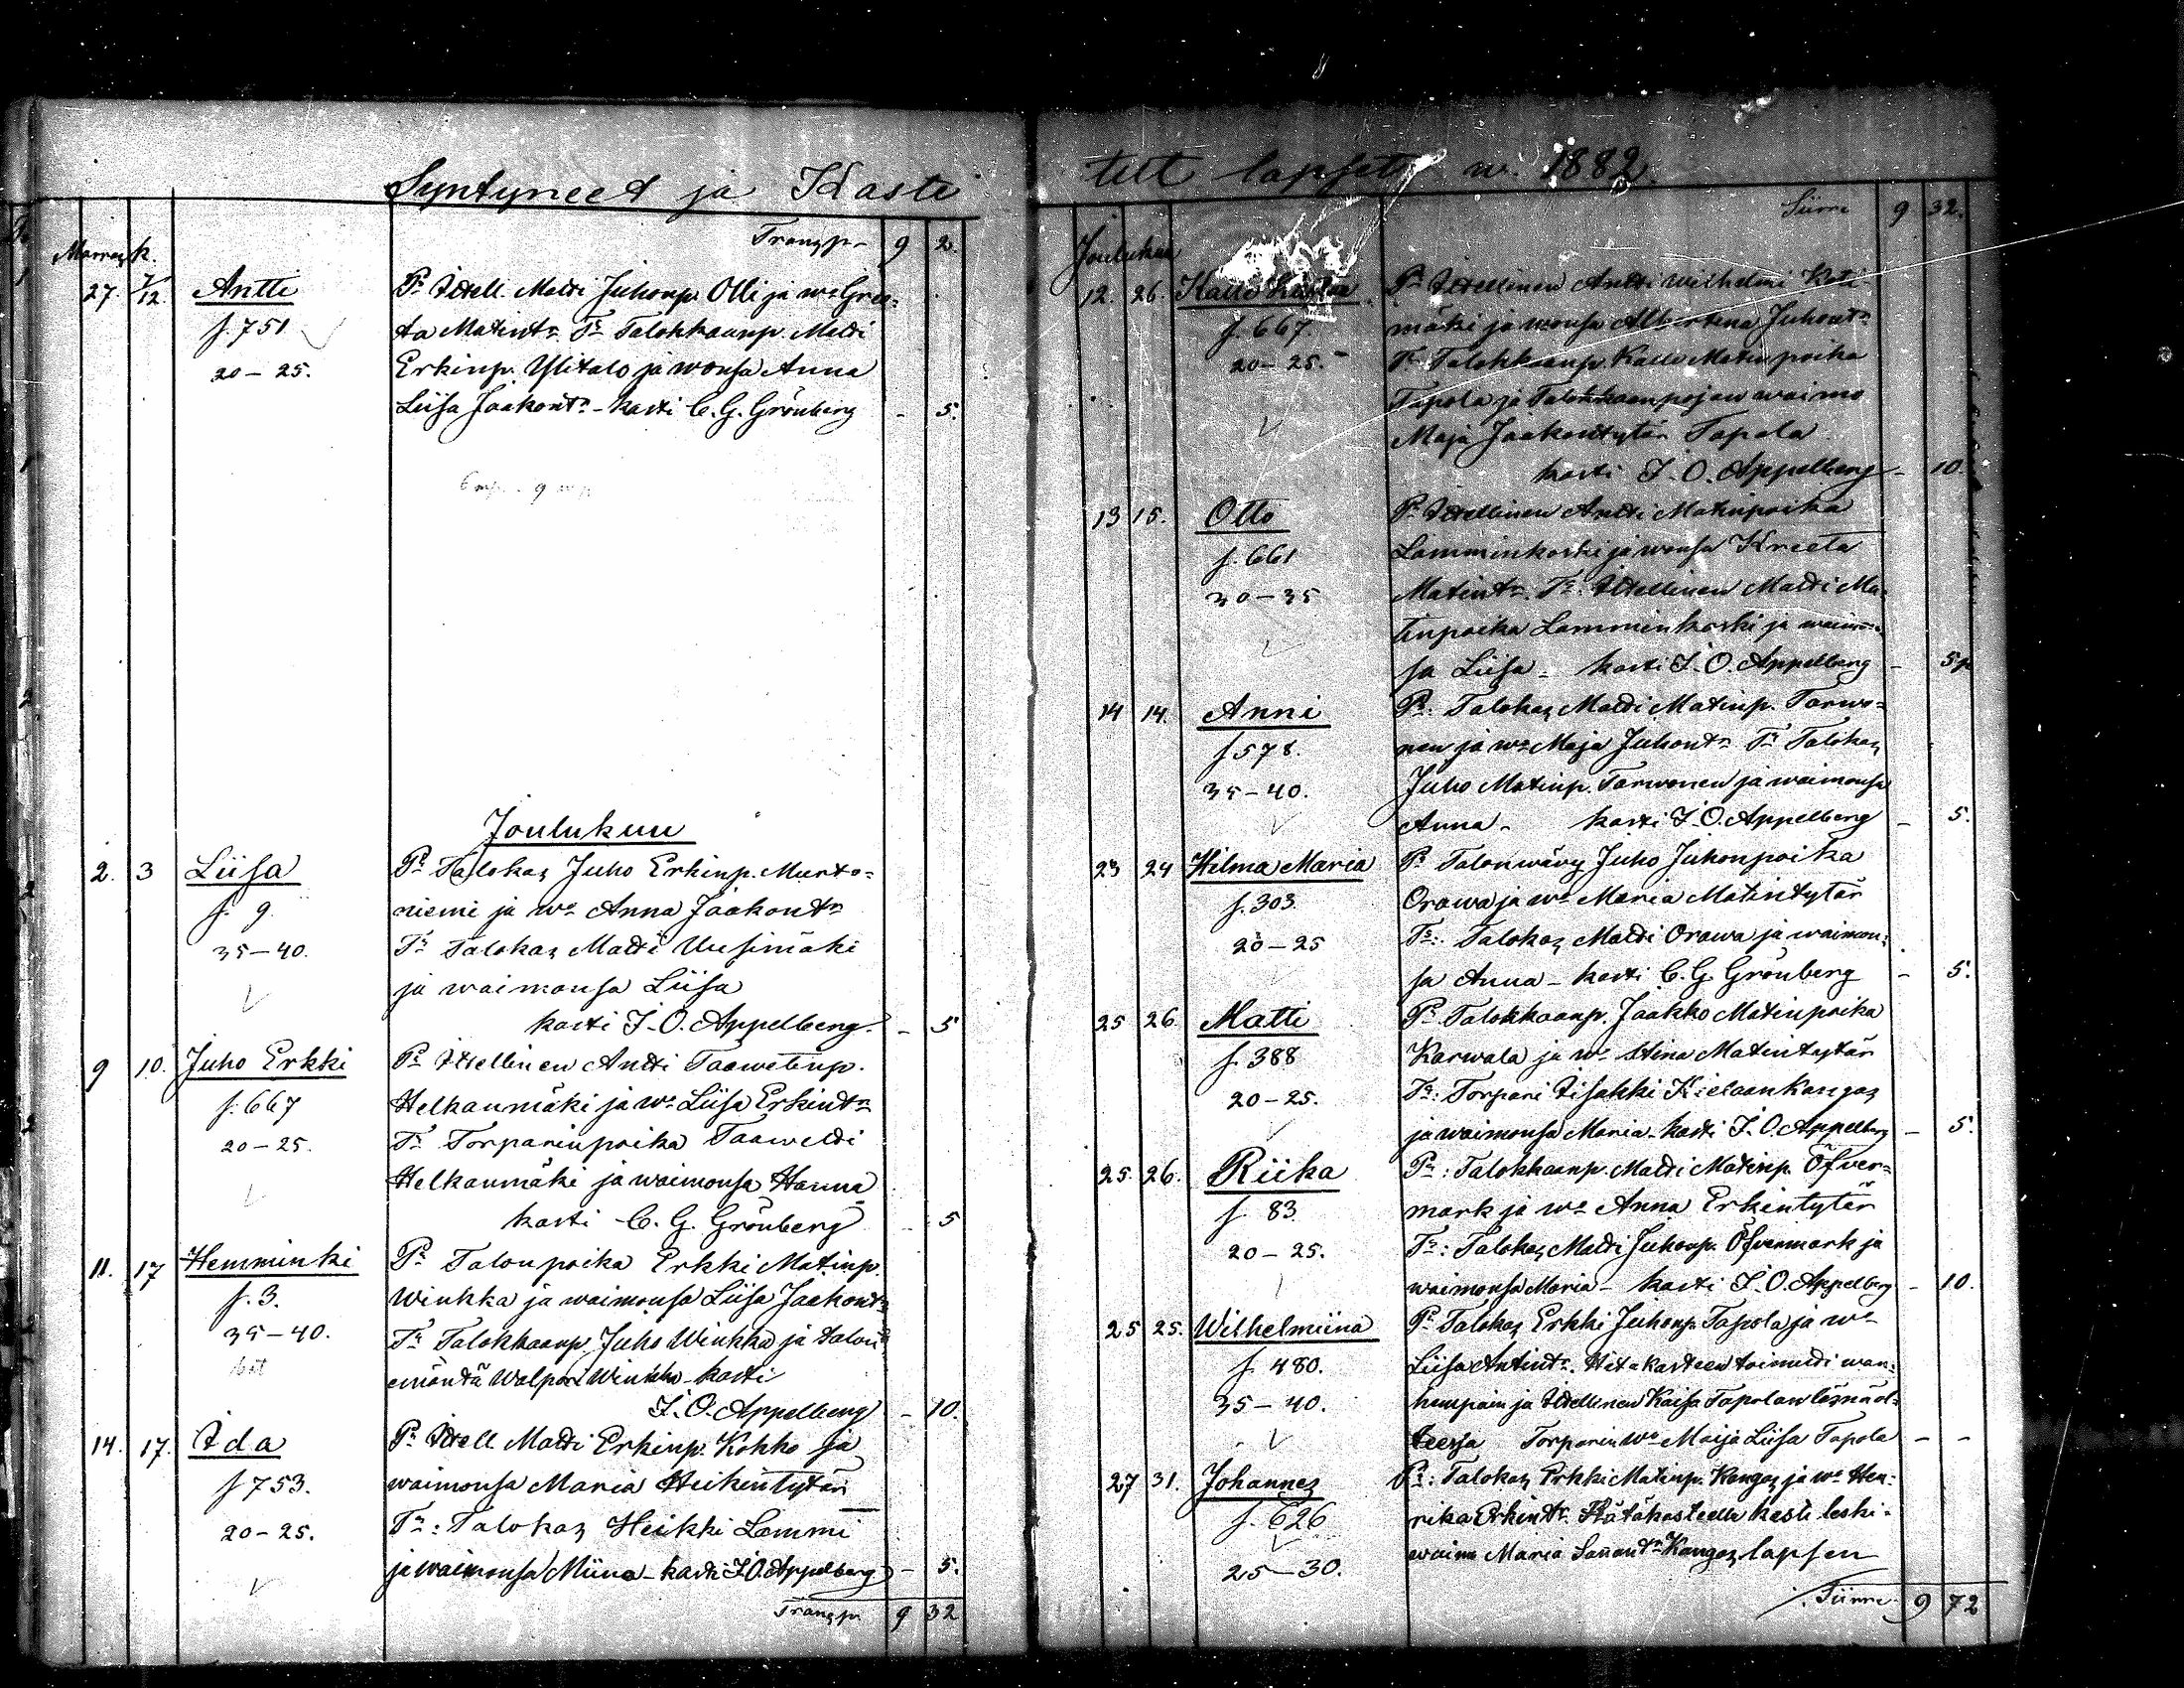 Syntyneet ja Kaste
Transp. 9 2.
Marrask.
27. 1/12 Antti Pr Itsell. Matti Juhonp. Olli ja wo Gree-
f. 751 ta Matintr Tr Talokkaanp. Matti
20-25. Erkinp. Ylitalo ja wonsa Anna
Liisa Jaakontr - kasti C. G. Grönberg - 5.
Joulukuu
2. 3 Liisa Pr Talokas Juho Erkinp. Murto-
f. 9 niemi ja wo Anna Jaakontr
35-40. Tr Talokas Matti Uusimäki
ja waimonsa Liisa
kasti I. O. Appelberg. - 5
9 10. Juho Erkki Pr Itsellinen Antti Taawetinp.
f. 667 Helkanmäki ja wo Liisa Erkintr
20-25. Tr Torparinpoika Taawetti
Helkanmäki ja waimonsa Hanna
kasti C. G. Grönberg - 5
11. 17 Hemminki Pr Talonpoika Erkki Matinp.
f. 3. Winkka ja waimonsa Liisa Jaakontr
35-40. Tr Talokkaanp. Juho Winkka ja talon
emäntä Walpori Winkka - kasti
I. O. Appelberg - 10.
14. 17. Ida Pr Itsell. Matti Erkinp. Kokko ja
f 753. waimonsa Maria Heikintytär
20-25. Tr: Talokas Heikki Lammi
ja waimonsa Miina - kasti I. O. Appelberg - 5.
Transp. 9 32
tut lapset w. 1882.
Siirre 9 32.
Joulukuu
12. 26. Kalle Kustaa Pr Itsellinen Antti Wilhelmi Koti-
f. 667. mäki ja wonsa Albertina Juhontr
20-25. Tr Talokkaanp. Kalle Matinpoika
Tapola ja Talokkaanpojan waimo
Maja Jaakontytär Tapola
kasti I. O. Appelberg - 10.
13 15. Otto Pr Itsellinen Antti Matinpoika
f. 661 Lamminkoski ja wonsa Kreeta
30-35 Matintr. Tr. Itsellinen Matti Ma-
tinpoika Lamminkoski ja waimon-
sa Liisa - kasti I. O. Appelberg - 5 p
14 14. Anni Pr: Talokas Matti Matinp. Tarwo-
f 578. nen ja wo Maja Juhontr Tr Talokas
35-40. Juho Matinp. Tarwonen ja waimonsa
Anna - kasti I. O. Appelberg - 5.
23 24 Hilma Maria Pr Talonwäwy Juho Juhonpoika
f. 303. Orawa ja wo Maria Matintytär
20-25 Tr: Talokas Matti Orawa ja waimon-
sa Anna - kasti C. G. Grönberg - 5.
25 26. Matti Pr Talokkaanp. Jaakko Matinpoika
f. 388 Karwala ja wo Stina Matintytär
20-25. Tr: Torpari Iisakki Kielaankangas
ja waimonsa Maria - kasti I. O. Appelberg - 5.
25. 26. Riika Pr: Talokkaanp. Matti Matinp. Öfver-
f. 83. mark ja wo Anna Erkintytär
20-25. Tr: Talokas Matti Juhonp. Öfvermark ja
waimonsa Maria - kasti I. O. Appelberg - 10.
25 25. Wilhelmiina Pr Talokas Erkki Juhonp. Tapola ja wo
f. 480. Liisa Antintr. Hätäkasteen toimitti wan-
35-40. hempain ja Itsellinen Kaisa Tapolan läsnäol-
leessa Torparin wo Maija Liisa Tapola - -
27 31. Johannes Pr: Talokas Erkki Matinp. Kangas ja wo Hen-
f. 626 rika Erkintr. Hätäkasteella kasti leski-
25-30. waimo Maria Sannantr Kangas lapsen
Siirre 9 72